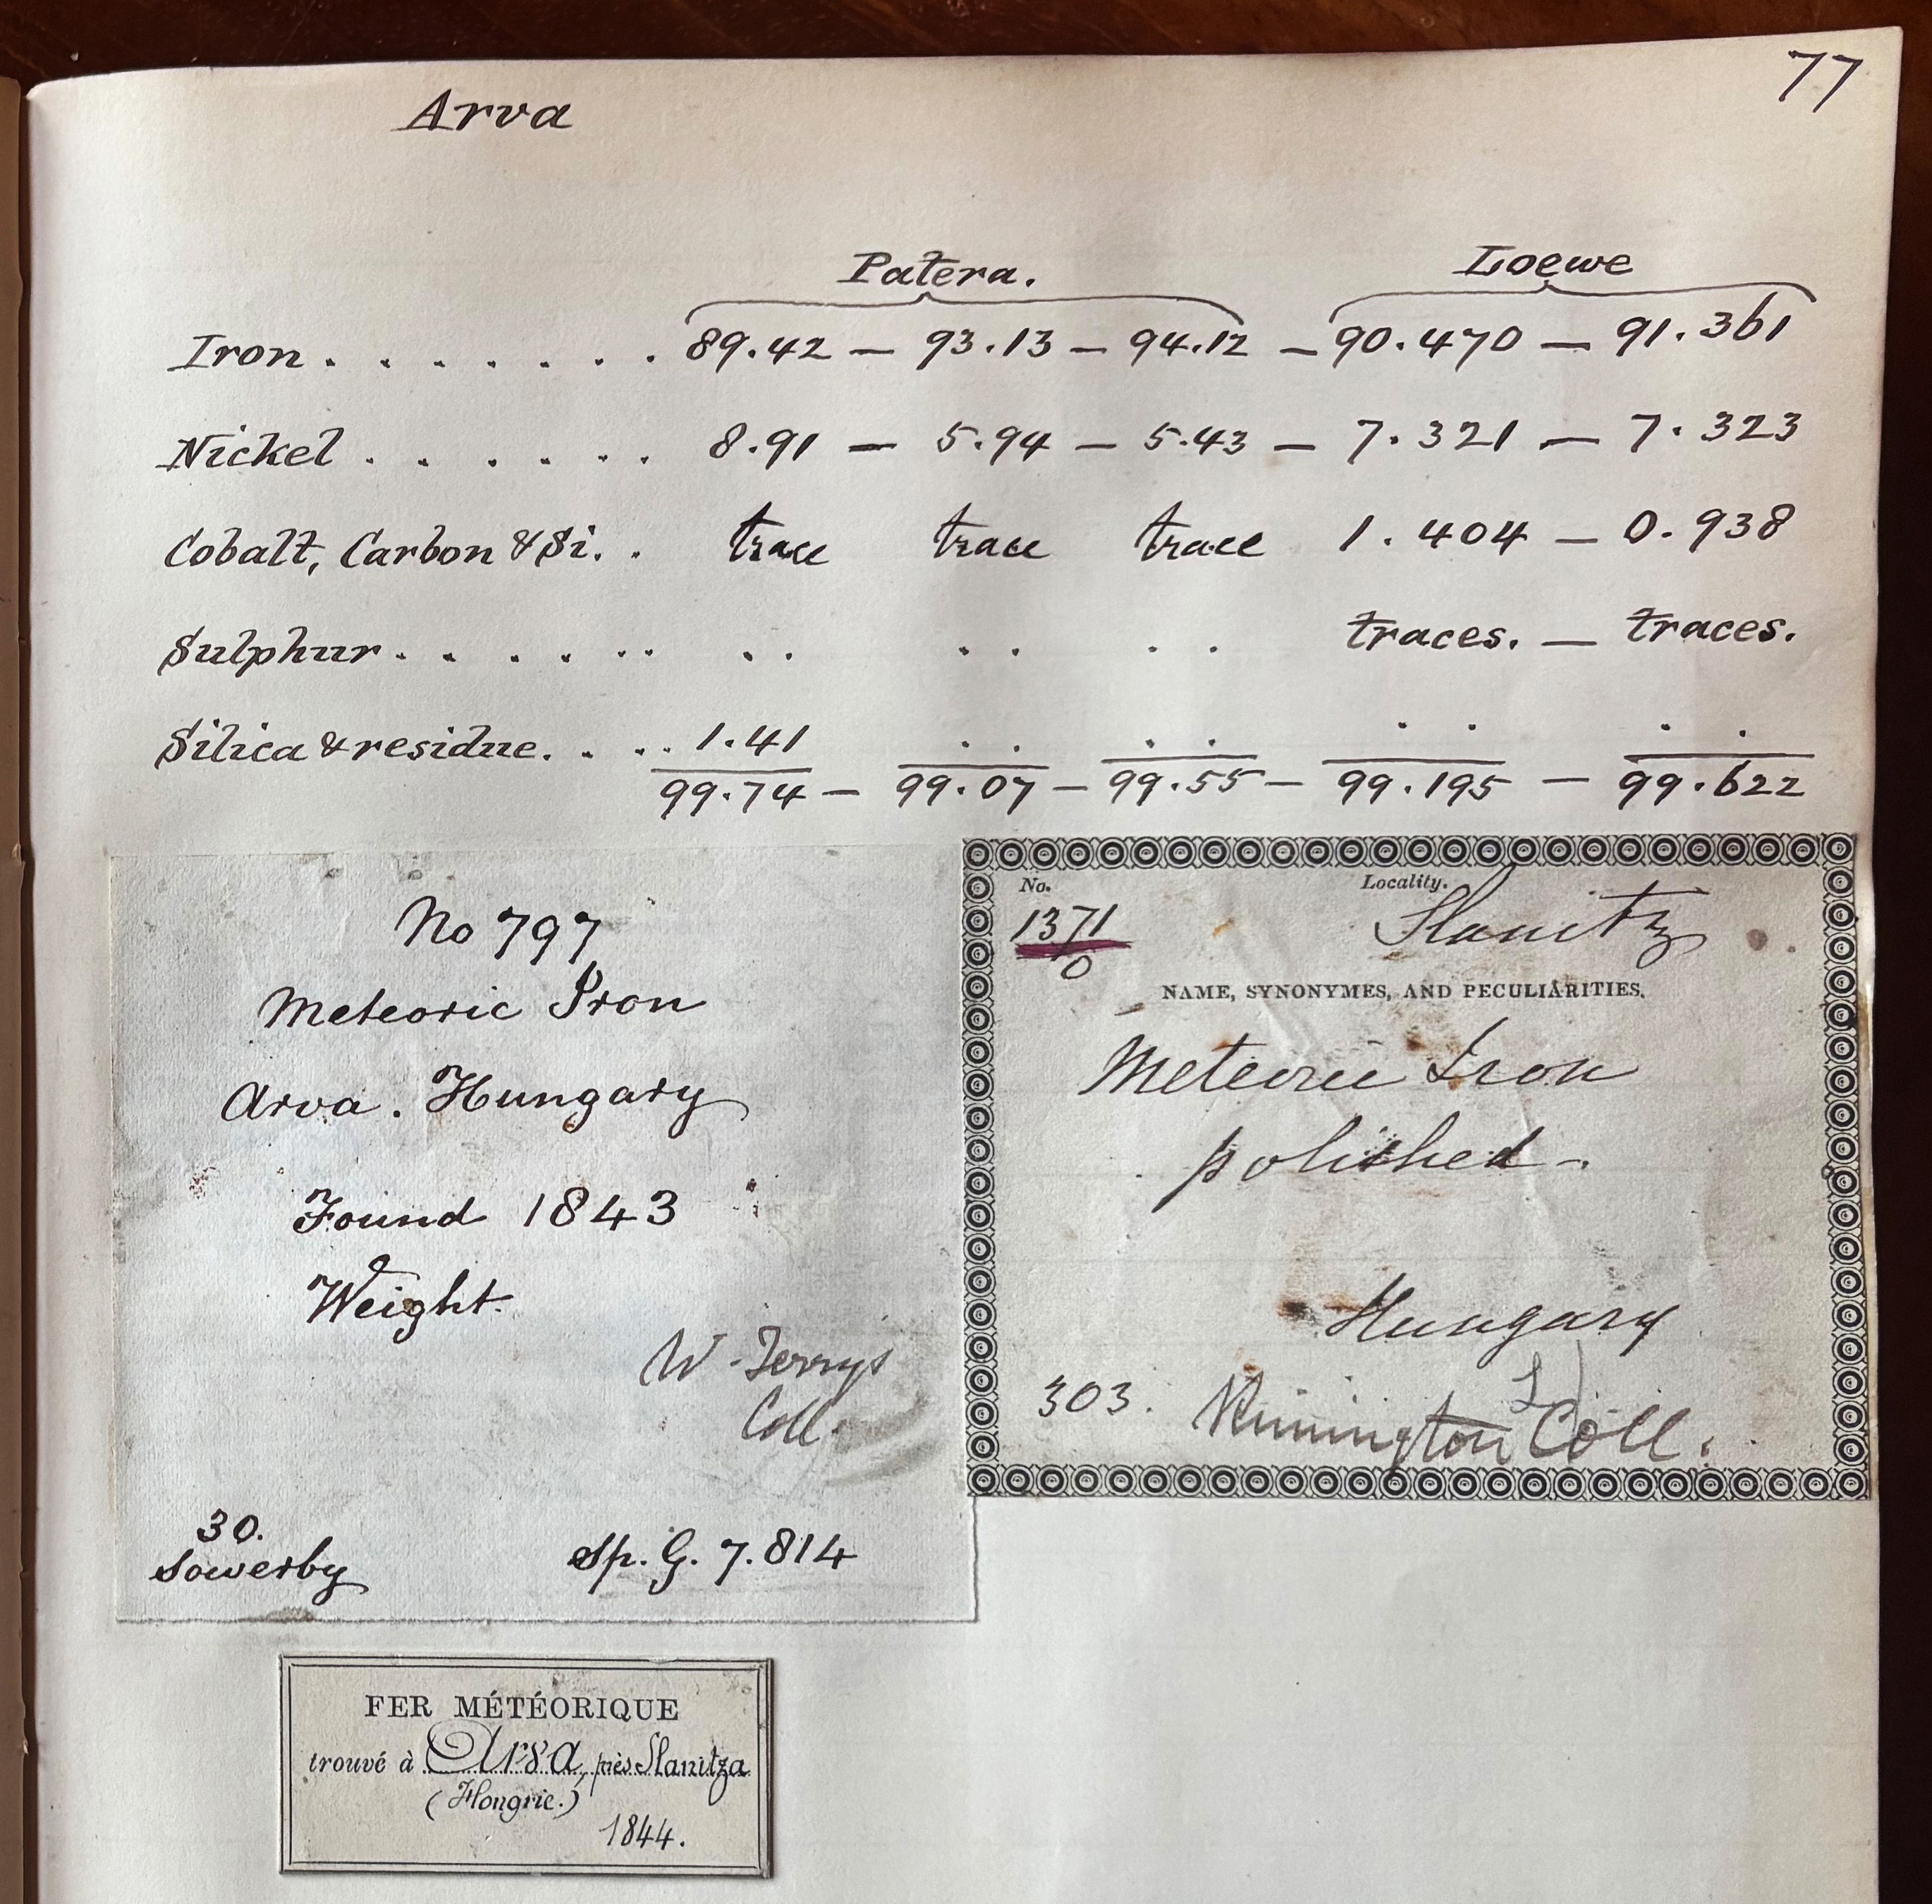 77
Arva
Patera. Loewe
Iron . . . . . . . 89.42 — 93.13 — 94.12 — 90.470 — 91.361
Nickel . . . . . . 8.91 — 5.94 — 5.43 — 7.321 — 7.323
Cobalt, Carbon & Si. . trace trace trace 1.404 — 0.938
Sulphur . . . . . . . . . . . . traces. — traces.
Silica & residue. . . . . 1.41 . . . . . . . .
99.74 — 99.07 — 99.55 — 99.195 — 99.622
No 797
Meteoric Iron
Arva. Hungary
Found 1843
Weight.
W. Terrys
Coll.
30.
Sowerby
Sp. G. 7.814
No. Locality.
1371 Slanitz
0
NAME, SYNONYMES, AND PECULIARITIES.
Meteoric Iron
polished -
Hungary
303. Rimington Coll.
FER MÉTÉORIQUE
trouvé à Arva, près Slanitza
(Hongrie.)
1844.